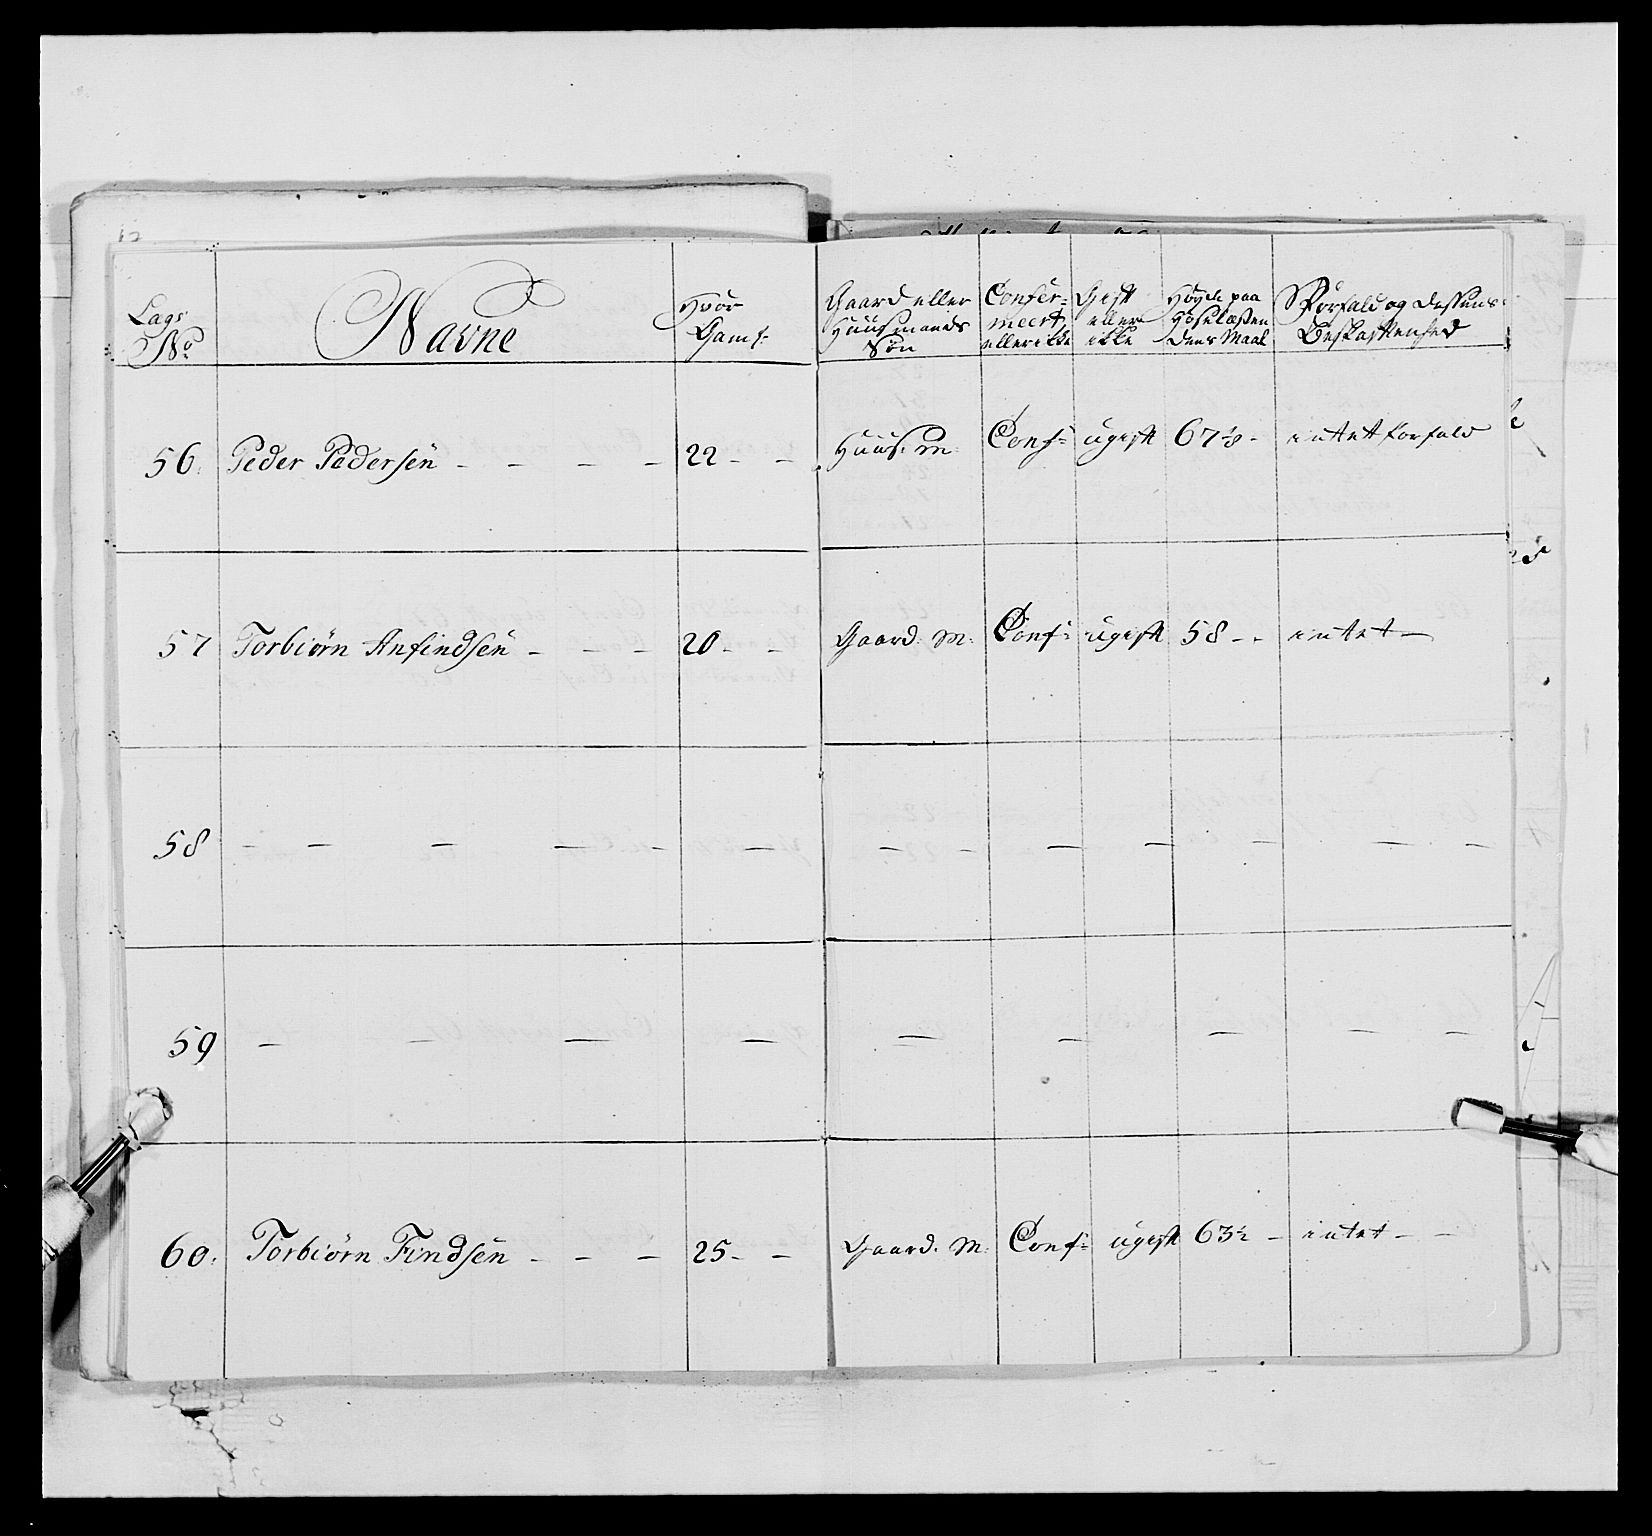 Lags No | Navne | Hvor Gaml: | Gaard eller Huusmands Søn | Confermeert, eller ikke | Gift eller ikke | Høyde paa Hoselæsten Dens Maal | Forfald og dessens Beskaffenhed
56. | Peder Pedersen - - - - | 22 - - | Huus. M: | Conf: | ugift | 67 1/8 - | intet forfald
57 | Torbiørn Anfindsen - - - | 20 - - | Gaard. M: | Conf: | ugift | 58 - - | intet -
58 | - - - - - | - | - - | - | - | - | - - -
59 | - - - | - | - | - | | - | - -
60. | Torbiørn Findsen - - - | 25 - - | Gaard. M: | Conf: | ugift | 63 1/2 - | intet - -